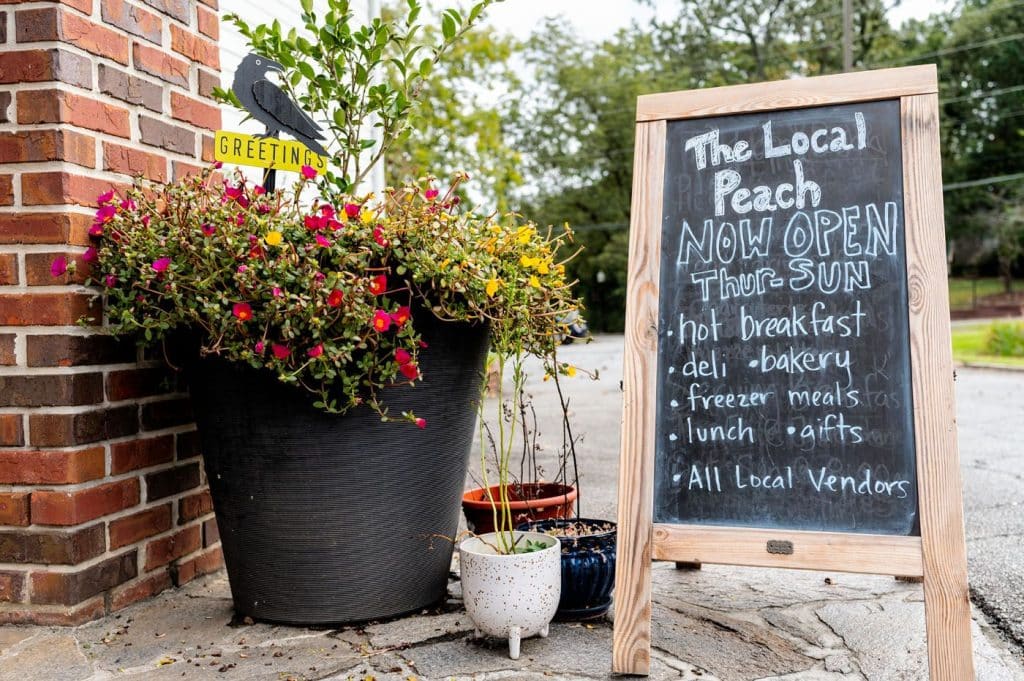 GREETINGS
The Local
Peach
NOW OPEN
Thur-SUN
• hot breakfast
• deli • bakery
• freezer meals
• lunch • gifts
• All Local Vendors